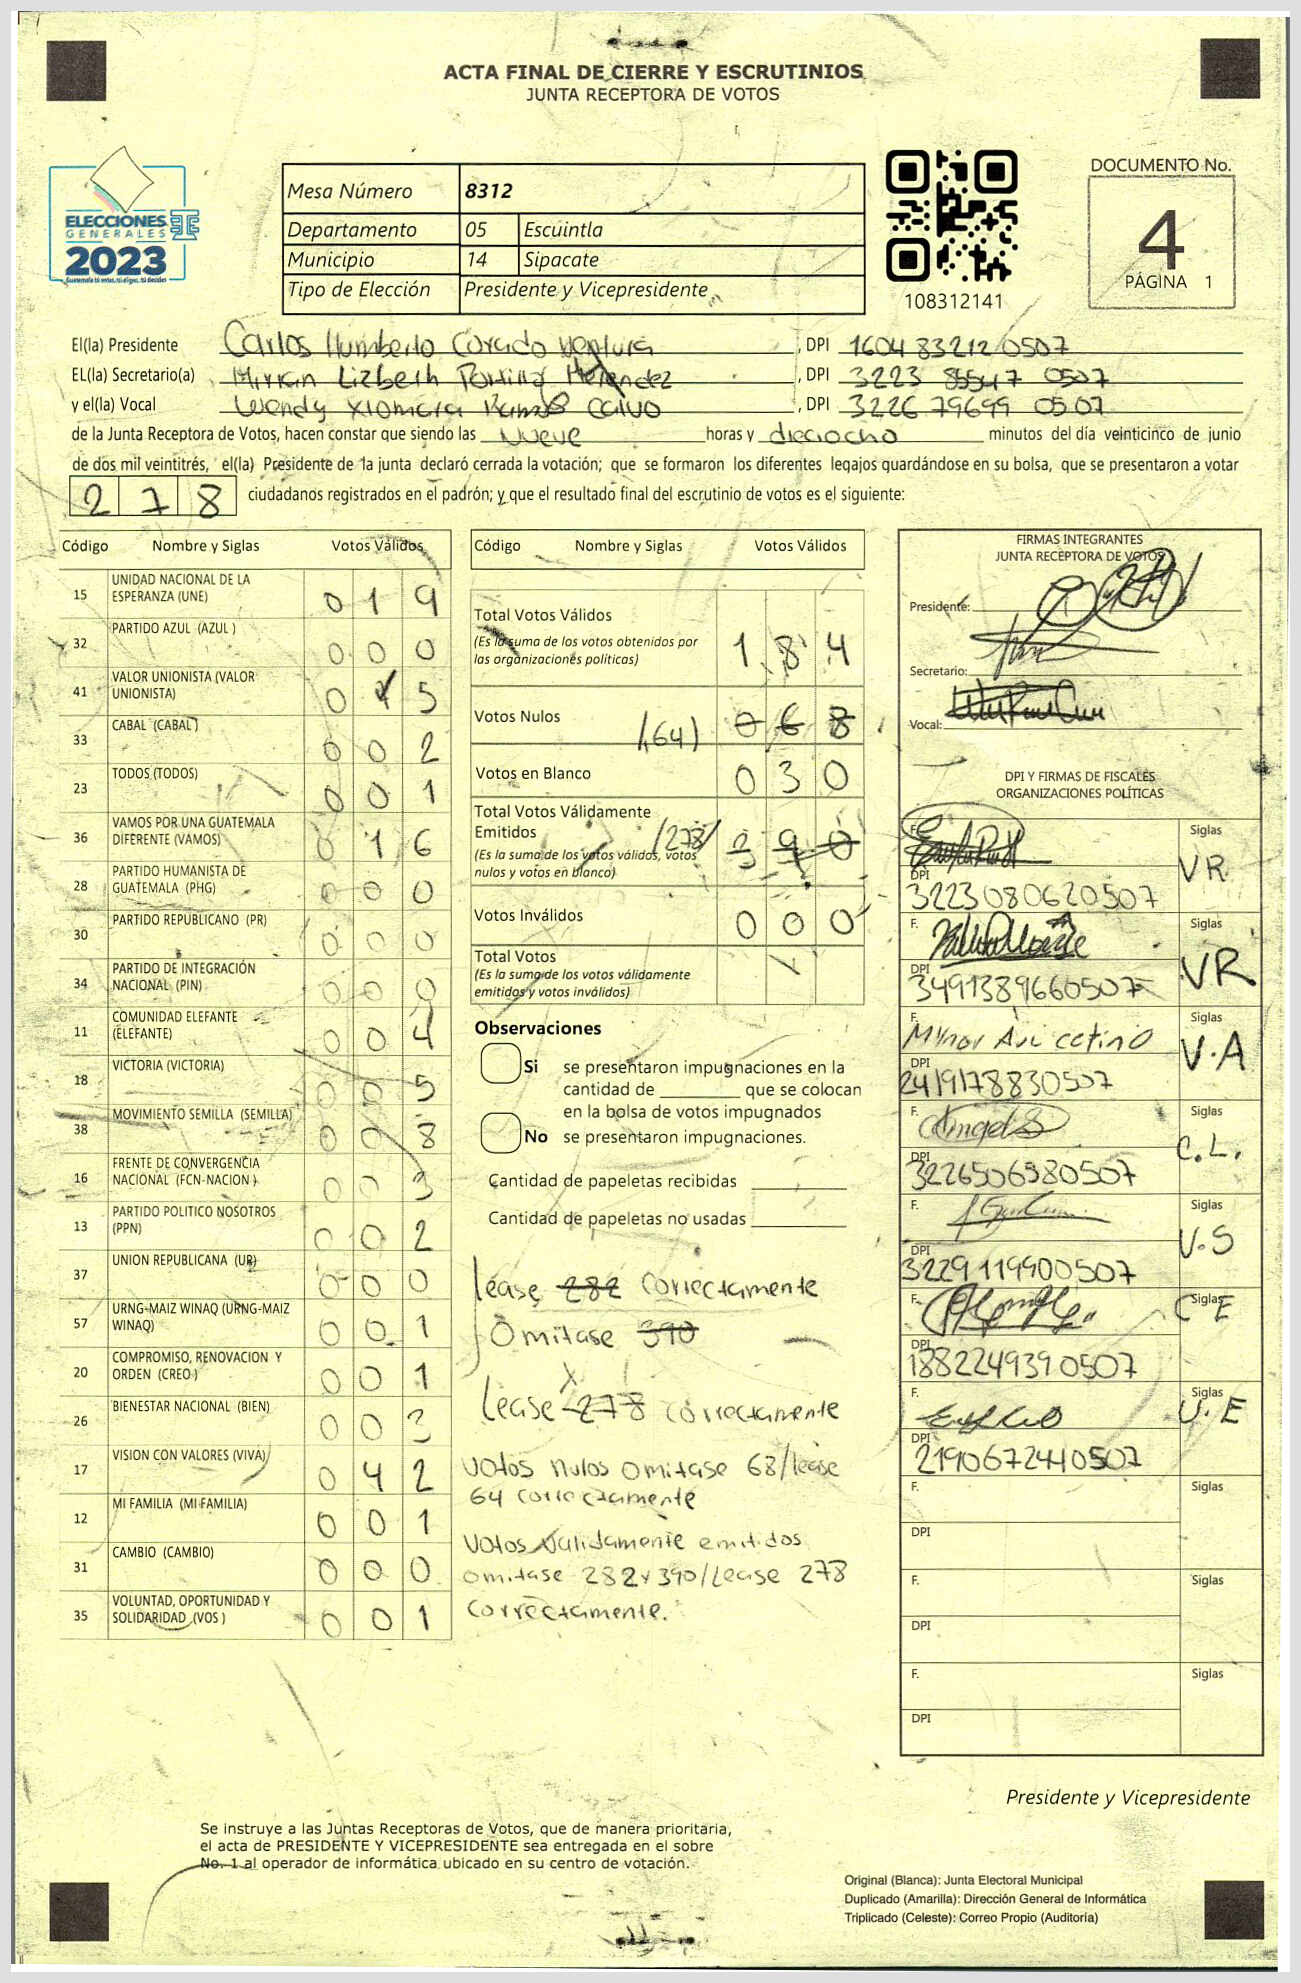 ACTA FINAL DE CIERRE Y ESCRUTINIOS
JUNTA RECEPTORA DE VOTOS
ELECCIONES
GENERALES
2023
Mesa Número 8312
Departamento 05 Escuintla
Municipio 14 Sipacate
Tipo de Elección Presidente y Vicepresidente
108312141
DOCUMENTO No.
4
PÁGINA 1
El(la) Presidente Carlos Humberto Corado Ventura, DPI 1604 83212 0507
EL(la) Secretario(a) Mirian Lizbeth Portillo Melendez, DPI 3223 0507
y el(la) Vocal Wendy Xiomara Ramos Calvo, DPI 3226 79699 0507
de la Junta Receptora de Votos, hacen constar que siendo las nueve horas y dieciocho minutos del día veinticinco de junio
de dos mil veintitrés, el(la) Presidente de la junta declaró cerrada la votación; que se formaron los diferentes legajos guardándose en su bolsa, que se presentaron a votar
278 ciudadanos registrados en el padrón; y que el resultado final del escrutinio de votos es el siguiente:
Código Nombre y Siglas Votos Válidos
15 UNIDAD NACIONAL DE LA ESPERANZA (UNE) 0 1 9
32 PARTIDO AZUL (AZUL ) 0 0 0
41 VALOR UNIONISTA (VALOR UNIONISTA) 0 5
33 CABAL (CABAL ) 0 0 2
23 TODOS (TODOS) 0 0 1
36 VAMOS POR UNA GUATEMALA DIFERENTE (VAMOS) 0 1 6
28 PARTIDO HUMANISTA DE GUATEMALA (PHG) 0 0 0
30 PARTIDO REPUBLICANO (PR) 0 0 0
34 PARTIDO DE INTEGRACIÓN NACIONAL (PIN) 0 0 0
11 COMUNIDAD ELEFANTE (ELEFANTE) 0 0 4
18 VICTORIA (VICTORIA) 0 0 5
38 MOVIMIENTO SEMILLA (SEMILLA) 0 0 8
16 FRENTE DE CONVERGENCIA NACIONAL (FCN-NACION ) 0 0 3
13 PARTIDO POLITICO NOSOTROS (PPN) 0 0 2
37 UNION REPUBLICANA (UR) 0 0 0
57 URNG-MAIZ WINAQ (URNG-MAIZ WINAQ) 0 0 1
20 COMPROMISO, RENOVACION Y ORDEN (CREO ) 0 0 1
26 BIENESTAR NACIONAL (BIEN) 0 0 3
17 VISION CON VALORES (VIVA) 0 4 2
12 MI FAMILIA (MI FAMILIA) 0 0 1
31 CAMBIO (CAMBIO) 0 0 0
35 VOLUNTAD, OPORTUNIDAD Y SOLIDARIDAD (VOS ) 0 0 1
Código Nombre y Siglas Votos Válidos
Total Votos Válidos 1 8 4
(Es la suma de los votos obtenidos por
las organizaciones políticas)
Votos Nulos (64) 0 6 8
Votos en Blanco 0 3 0
Total Votos Válidamente
Emitidos /278/ 0
(Es la suma de los votos válidos, votos
nulos y votos en blanco)
Votos Inválidos 0 0 0
Total Votos
(Es la suma de los votos válidamente
emitidos y votos inválidos)
Observaciones
Si se presentaron impugnaciones en la
cantidad de ________ que se colocan
en la bolsa de votos impugnados
No se presentaron impugnaciones.
Cantidad de papeletas recibidas
Cantidad de papeletas no usadas
lease 282 correctamente
Omitase 390
Lease 278 correctamente
Votos nulos omitase 68/lease
64 correctamente
Votos validamente emitidos
omitase 282 y 390/Lease 278
correctamente.
FIRMAS INTEGRANTES
JUNTA RECEPTORA DE VOTOS
Presidente:
Secretario:
Vocal:
DPI Y FIRMAS DE FISCALES
ORGANIZACIONES POLÍTICAS
F. Siglas VR
DPI 3223080620507
F. Siglas VR
DPI 3491389660507
F. Siglas V.A
DPI 2419178830507
F. Siglas C.L.
DPI 3226506980507
F. Siglas V.S
DPI 3229119900507
F. Siglas C E
DPI 1882249390507
F. Siglas U.E
DPI 2190672440507
F. Siglas
DPI
F. Siglas
DPI
F. Siglas
DPI
Presidente y Vicepresidente
Se instruye a las Juntas Receptoras de Votos, que de manera prioritaria,
el acta de PRESIDENTE Y VICEPRESIDENTE sea entregada en el sobre
No. 1 al operador de informática ubicado en su centro de votación.
Original (Blanca): Junta Electoral Municipal
Duplicado (Amarilla): Dirección General de Informática
Triplicado (Celeste): Correo Propio (Auditoría)